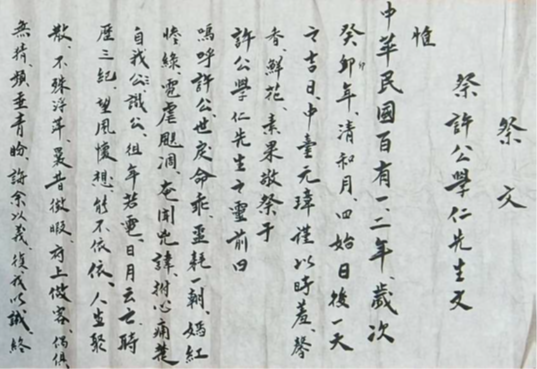 祭文
祭許公學仁先生文
惟
中華民國百有一二年、歲次
癸卯年、清和月、四始日後一天
之吉日中臺元璋謹以時羞、馨
香、鮮花、素果敬祭于
許公學仁先生之靈前曰
嗚呼許公、世戾命乖、噩耗一朝、嫣紅
慘綠、電虐颶凋、奄聞兇諱、拊心痛楚
自我公識公、徂年若電、日月云亡、時
歷三紀、望風懷想、能不依依、人生聚
散、不殊浮萍、曩昔微暇、府上做客、偶俱
無猜、頻垂青盼、許余以義、復我以誠、終